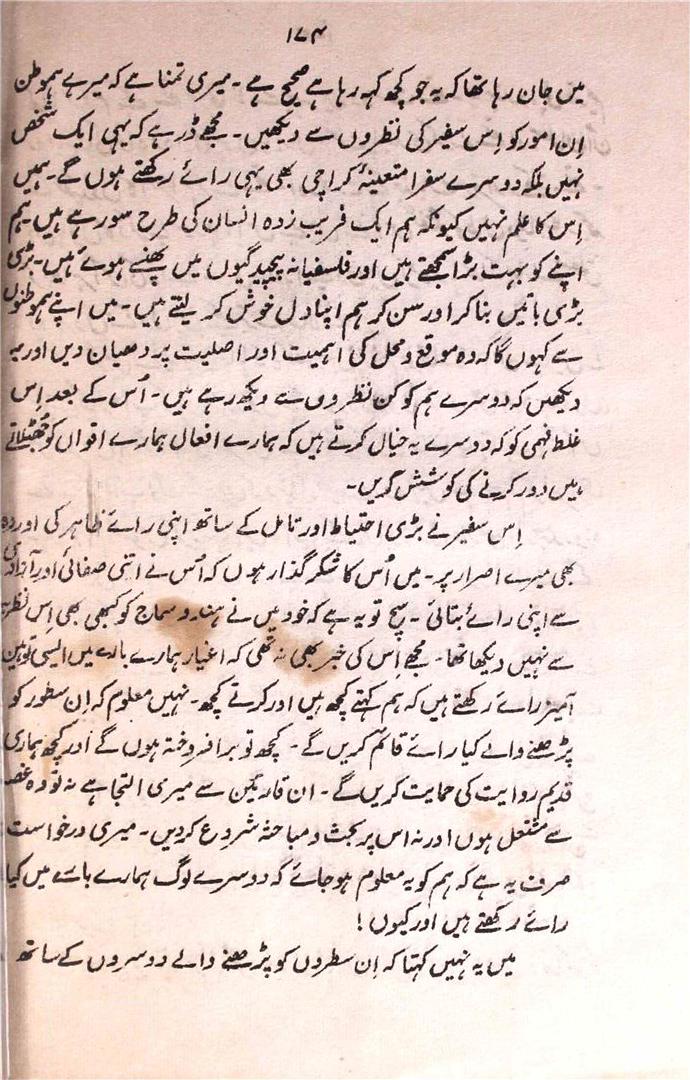 ۱۷۴
میں جان رہا تھا کہ یہ جو کچھ کہہ رہا ہے صحیح ہے ۔ میری تمنا ہے کہ میرے ہموطن
اِن امور کو اِس سفیر کی نظروں سے دیکھیں ۔ مجھے ڈر ہے کہ یہی ایک شخص
نہیں بلکہ دوسرے سفرا متعینۂ کراچی بھی یہی رائے رکھتے ہوں گے ۔ ہمیں
اِس کا علم نہیں کیونکہ ہم ایک فریب زدہ انسان کی طرح سو رہے ہیں ۔ ہم
اپنے کو بہت بڑا سمجھتے ہیں اور فلسفیانہ پیچیدگیوں میں پھنسے ہوئے ہیں ۔ بڑی
بڑی باتیں بنا کر اور سن کر ہم اپنا دل خوش کر لیتے ہیں ۔ میں اپنے ہموطنوں
سے کہوں گا کہ وہ موقع و محل کی اہمیت اور اصلیت پر دھیان دیں اور یہ
دیکھیں کہ دوسرے ہم کو کن نظروں سے دیکھ رہے ہیں ۔ اُس کے بعد اِس
غلط فہمی کو کہ دوسرے یہ خیال کرتے ہیں کہ ہمارے افعال ہمارے اقوال کو جھٹلاتے
ہیں دور کرنے کی کوشش کریں ۔
اِس سفیر نے بڑی احتیاط اور تامل کے ساتھ اپنی رائے ظاہر کی اور وہ
بھی میرے اصرار پر ۔ میں اُس کا شکر گذار ہوں کہ اُس نے اتنی صفائی اور آزادی
سے اپنی رائے بتائی ۔ سچ تو یہ ہے کہ خود میں نے ہندو سماج کو کبھی بھی اِس نظریہ
سے نہیں دیکھا تھا ۔ مجھے اِس کی خبر بھی نہ تھی کہ اغیار ہمارے بارے میں ایسی توہین
آمیز رائے رکھتے ہیں کہ ہم کہتے کچھ ہیں اور کرتے کچھ ۔ نہیں معلوم کہ اِن سطور کو
پڑھنے والے کیا رائے قائم کریں گے ۔ کچھ تو برافروختہ ہوں گے اور کچھ ہماری
قدیم روایت کی حمایت کریں گے ۔ ان قارئین سے میری التجا ہے نہ تو وہ غصہ
سے مشتعل ہوں اور نہ اس پر بحث و مباحثہ شروع کر دیں ۔ میری درخواست
صرف یہ ہے کہ ہم کو یہ معلوم ہو جائے کہ دوسرے لوگ ہمارے بارے میں کیا
رائے رکھتے ہیں اور کیوں !
میں یہ نہیں کہتا کہ اِن سطروں کو پڑھنے والے دوسروں کے ساتھ